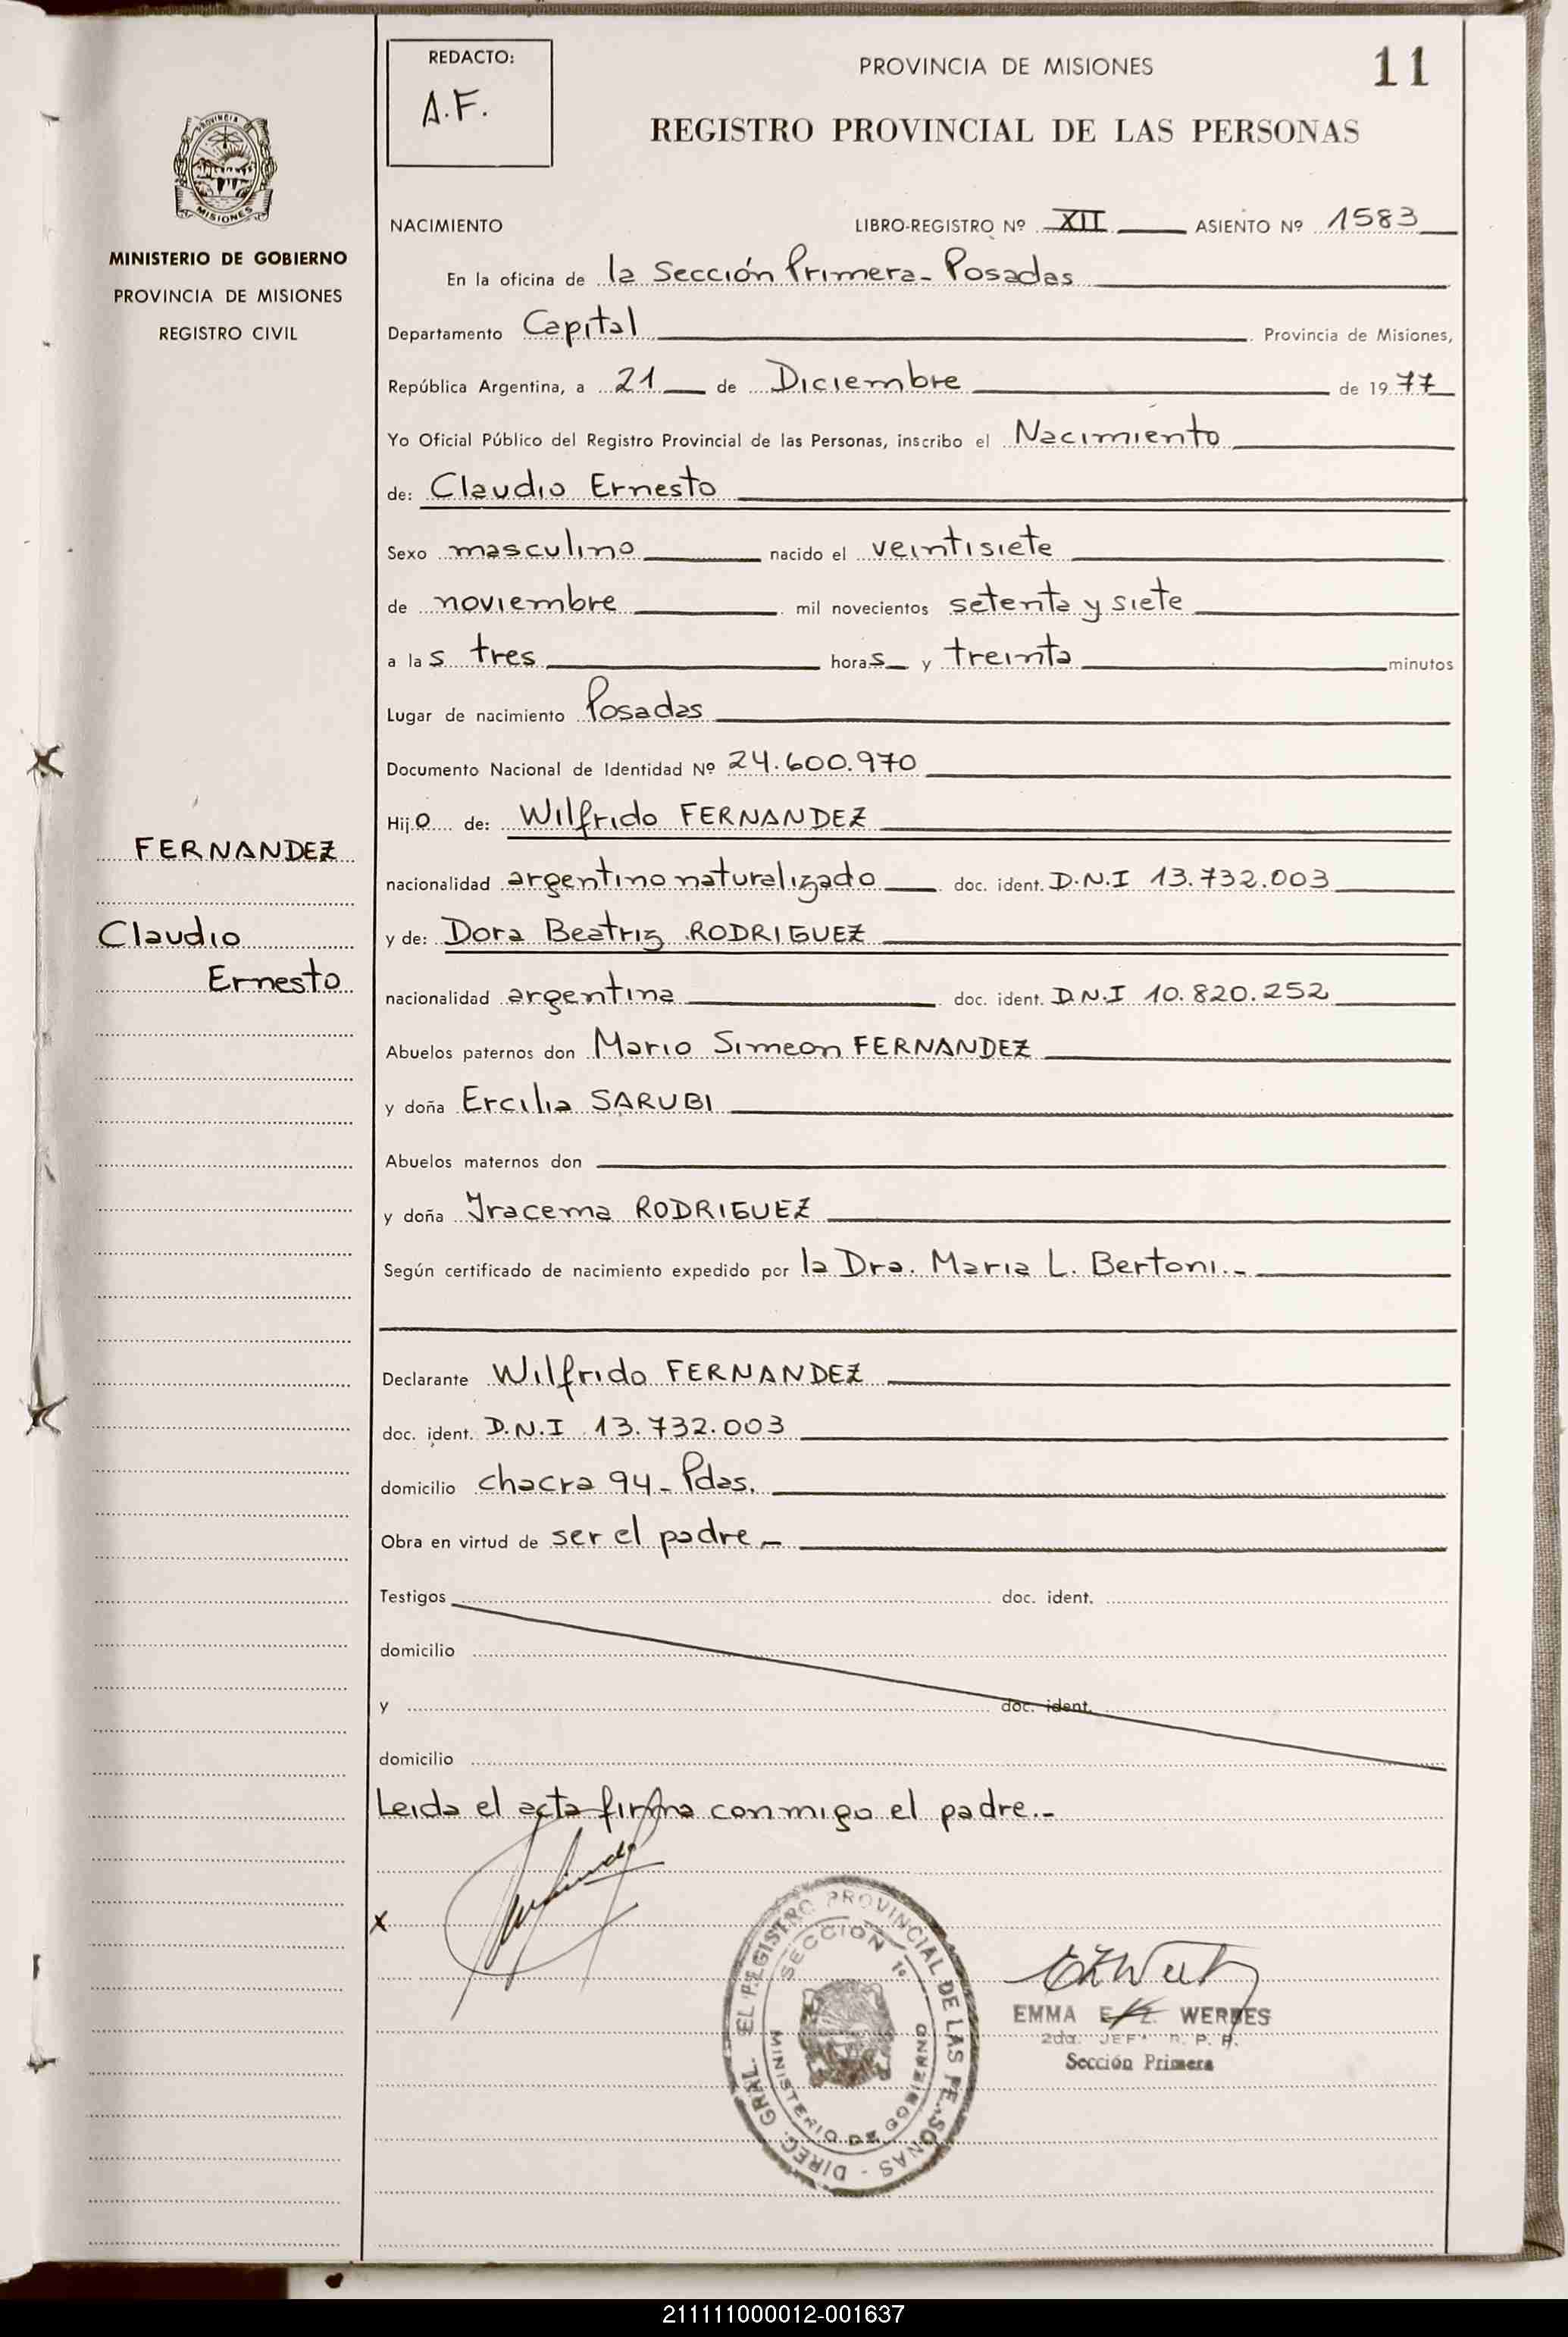 REDACTO:
A.F.
PROVINCIA DE MISIONES
11
REGISTRO PROVINCIAL DE LAS PERSONAS
PROVINCIA
MISIONES
MINISTERIO DE GOBIERNO
PROVINCIA DE MISIONES
REGISTRO CIVIL
NACIMIENTO LIBRO-REGISTRO Nº XII ASIENTO Nº 1583
En la oficina de la Sección Primera - Posadas
Departamento Capital Provincia de Misiones,
República Argentina, a 21 de Diciembre de 1977
Yo Oficial Público del Registro Provincial de las Personas, inscribo el Nacimiento
de: Claudio Ernesto
Sexo masculino nacido el veintisiete
de noviembre mil novecientos setenta y siete
a las tres horas y treinta minutos
Lugar de nacimiento Posadas
Documento Nacional de Identidad Nº 24.600.970
Hijo de: Wilfrido FERNANDEZ
FERNANDEZ
nacionalidad argentino naturalizado doc. ident. D.N.I 13.732.003
Claudio
y de: Dora Beatriz RODRIGUEZ
Ernesto
nacionalidad argentina doc. ident. D.N.I 10.820.252
Abuelos paternos don Mario Simeon FERNANDEZ
y doña Ercilia SARUBI
Abuelos maternos don
y doña Iracema RODRIGUEZ
Según certificado de nacimiento expedido por la Dra. Maria L. Bertoni.-
Declarante Wilfrido FERNANDEZ
doc. ident. D.N.I 13.732.003
domicilio chacra 94 - Pdas.
Obra en virtud de ser el padre -
Testigos doc. ident.
domicilio
y doc. ident.
domicilio
Leida el acta firma conmigo el padre.-
x
DIREC. GRAL. EL REGISTRO PROVINCIAL DE LAS PERSONAS -
SECCION 1º
MINISTERIO DE GOBIERNO
EMMA E. WERBES
2da. JEFA R. P. P.
Sección Primera
211111000012-001637